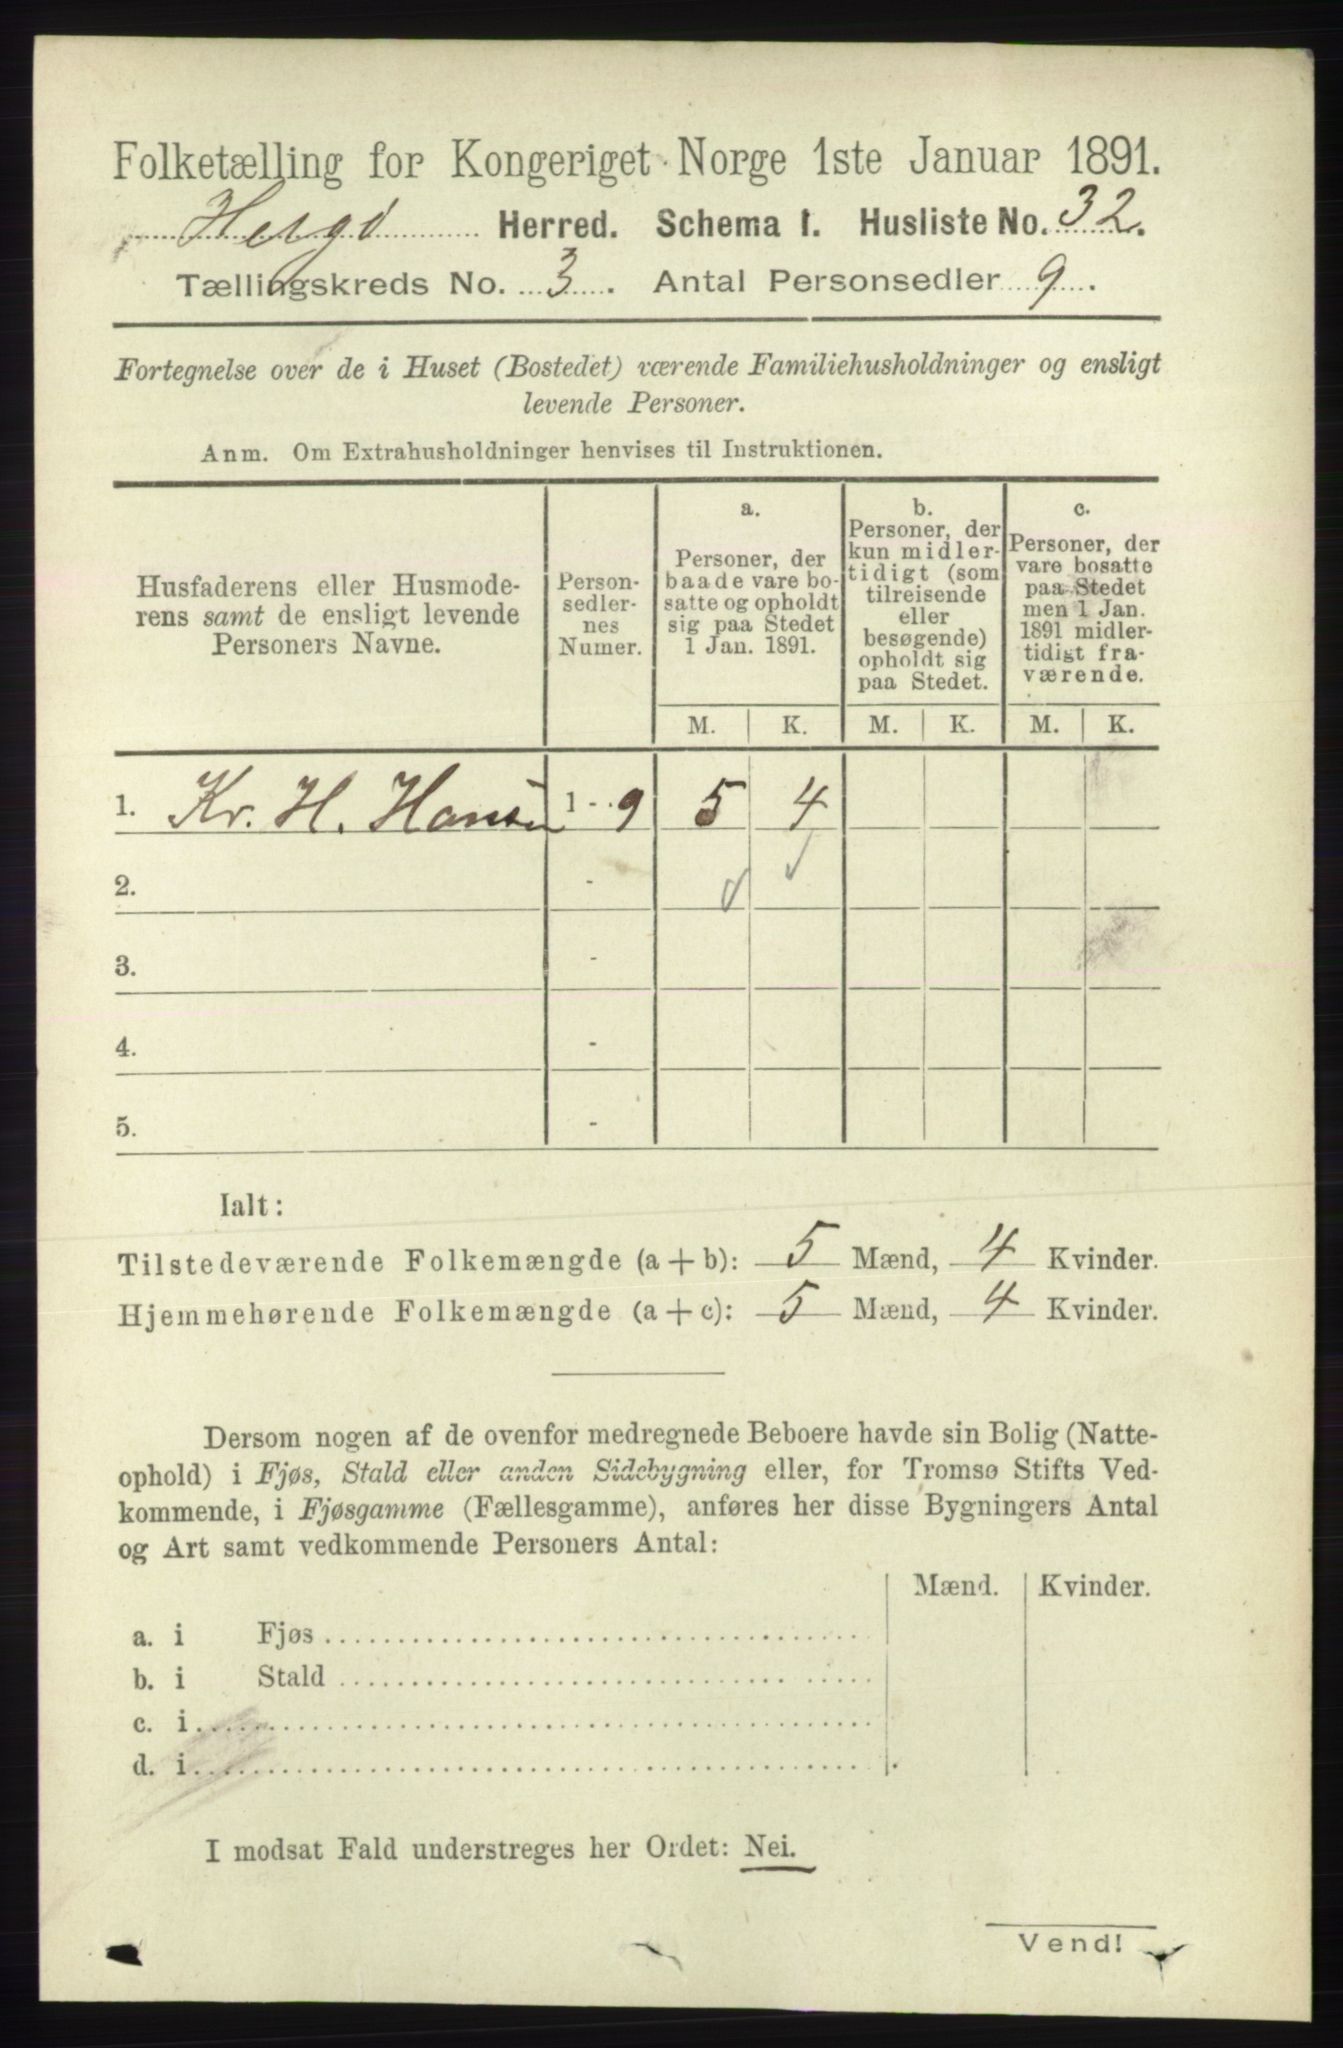 Folketælling for Kongeriget Norge 1ste Januar 1891.
Herø Herred. Schema I. Husliste No. 32.
Tællingskreds No. 3. Antal Personsedler 9.
Fortegnelse over de i Huset (Bostedet) værende Familiehusholdninger og ensligt
levende Personer.
Anm. Om Extrahusholdninger henvises til Instruktionen.
Husfaderens eller Husmode-
rens samt de ensligt levende
Personers Navne.
Person-
sedler-
nes
Numer.
a.
Personer, der
baade vare bo-
satte og opholdt
sig paa Stedet
1 Jan. 1891.
b.
Personer, der
kun midler-
tidigt (som
tilreisende
eller
besøgende)
opholdt sig
paa Stedet.
c.
Personer, der
vare bosatte
paa Stedet
men 1 Jan.
1891 midler-
tidigt fra-
værende.
M. K. M. K. M. K.
1. Kr. H. Hansen 1 - 9 5 4
2. -
3. -
4. -
5. -
Ialt:
Tilstedeværende Folkemængde (a + b): 5 Mænd, 4 Kvinder.
Hjemmehørende Folkemængde (a + c): 5 Mænd, 4 Kvinder.
Dersom nogen af de ovenfor medregnede Beboere havde sin Bolig (Natte-
ophold) i Fjøs, Stald eller anden Sidebygning eller, for Tromsø Stifts Ved-
kommende, i Fjøsgamme (Fællesgamme), anføres her disse Bygningers Antal
og Art samt vedkommende Personers Antal:
Mænd. Kvinder.
a. i Fjøs
b. i Stald
c. i
d. i
I modsat Fald understreges her Ordet: Nei.
Vend!